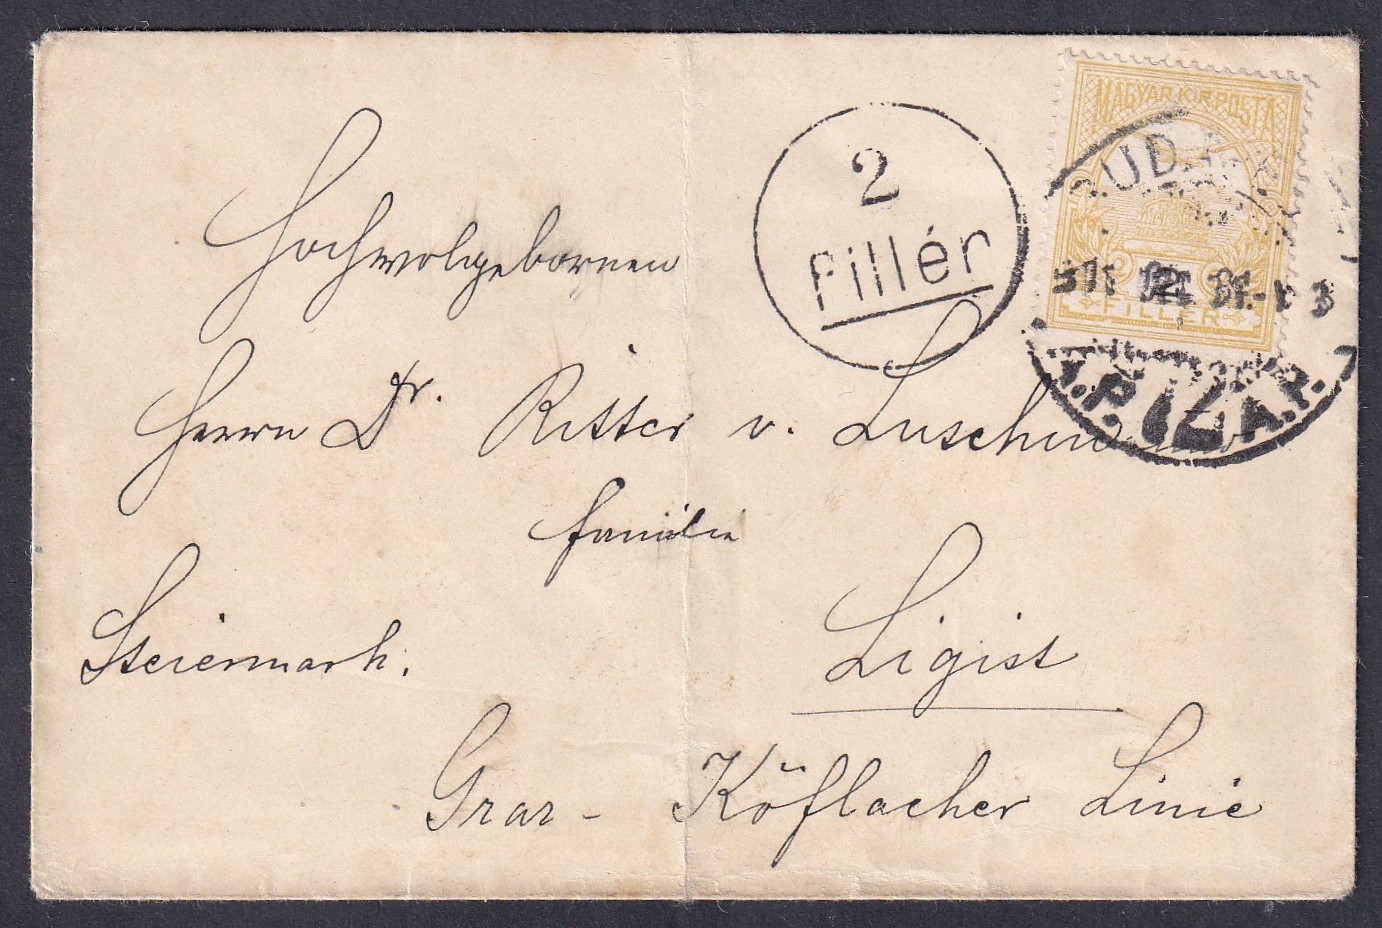 MAGYAR KIR. POSTA
2
FILLÉR
2
fillér
Hochwolgebornen
Herrn Dr. Ritter v. Luschin
familie
Steiermark.
Ligist
Graz - Köflacher Linie